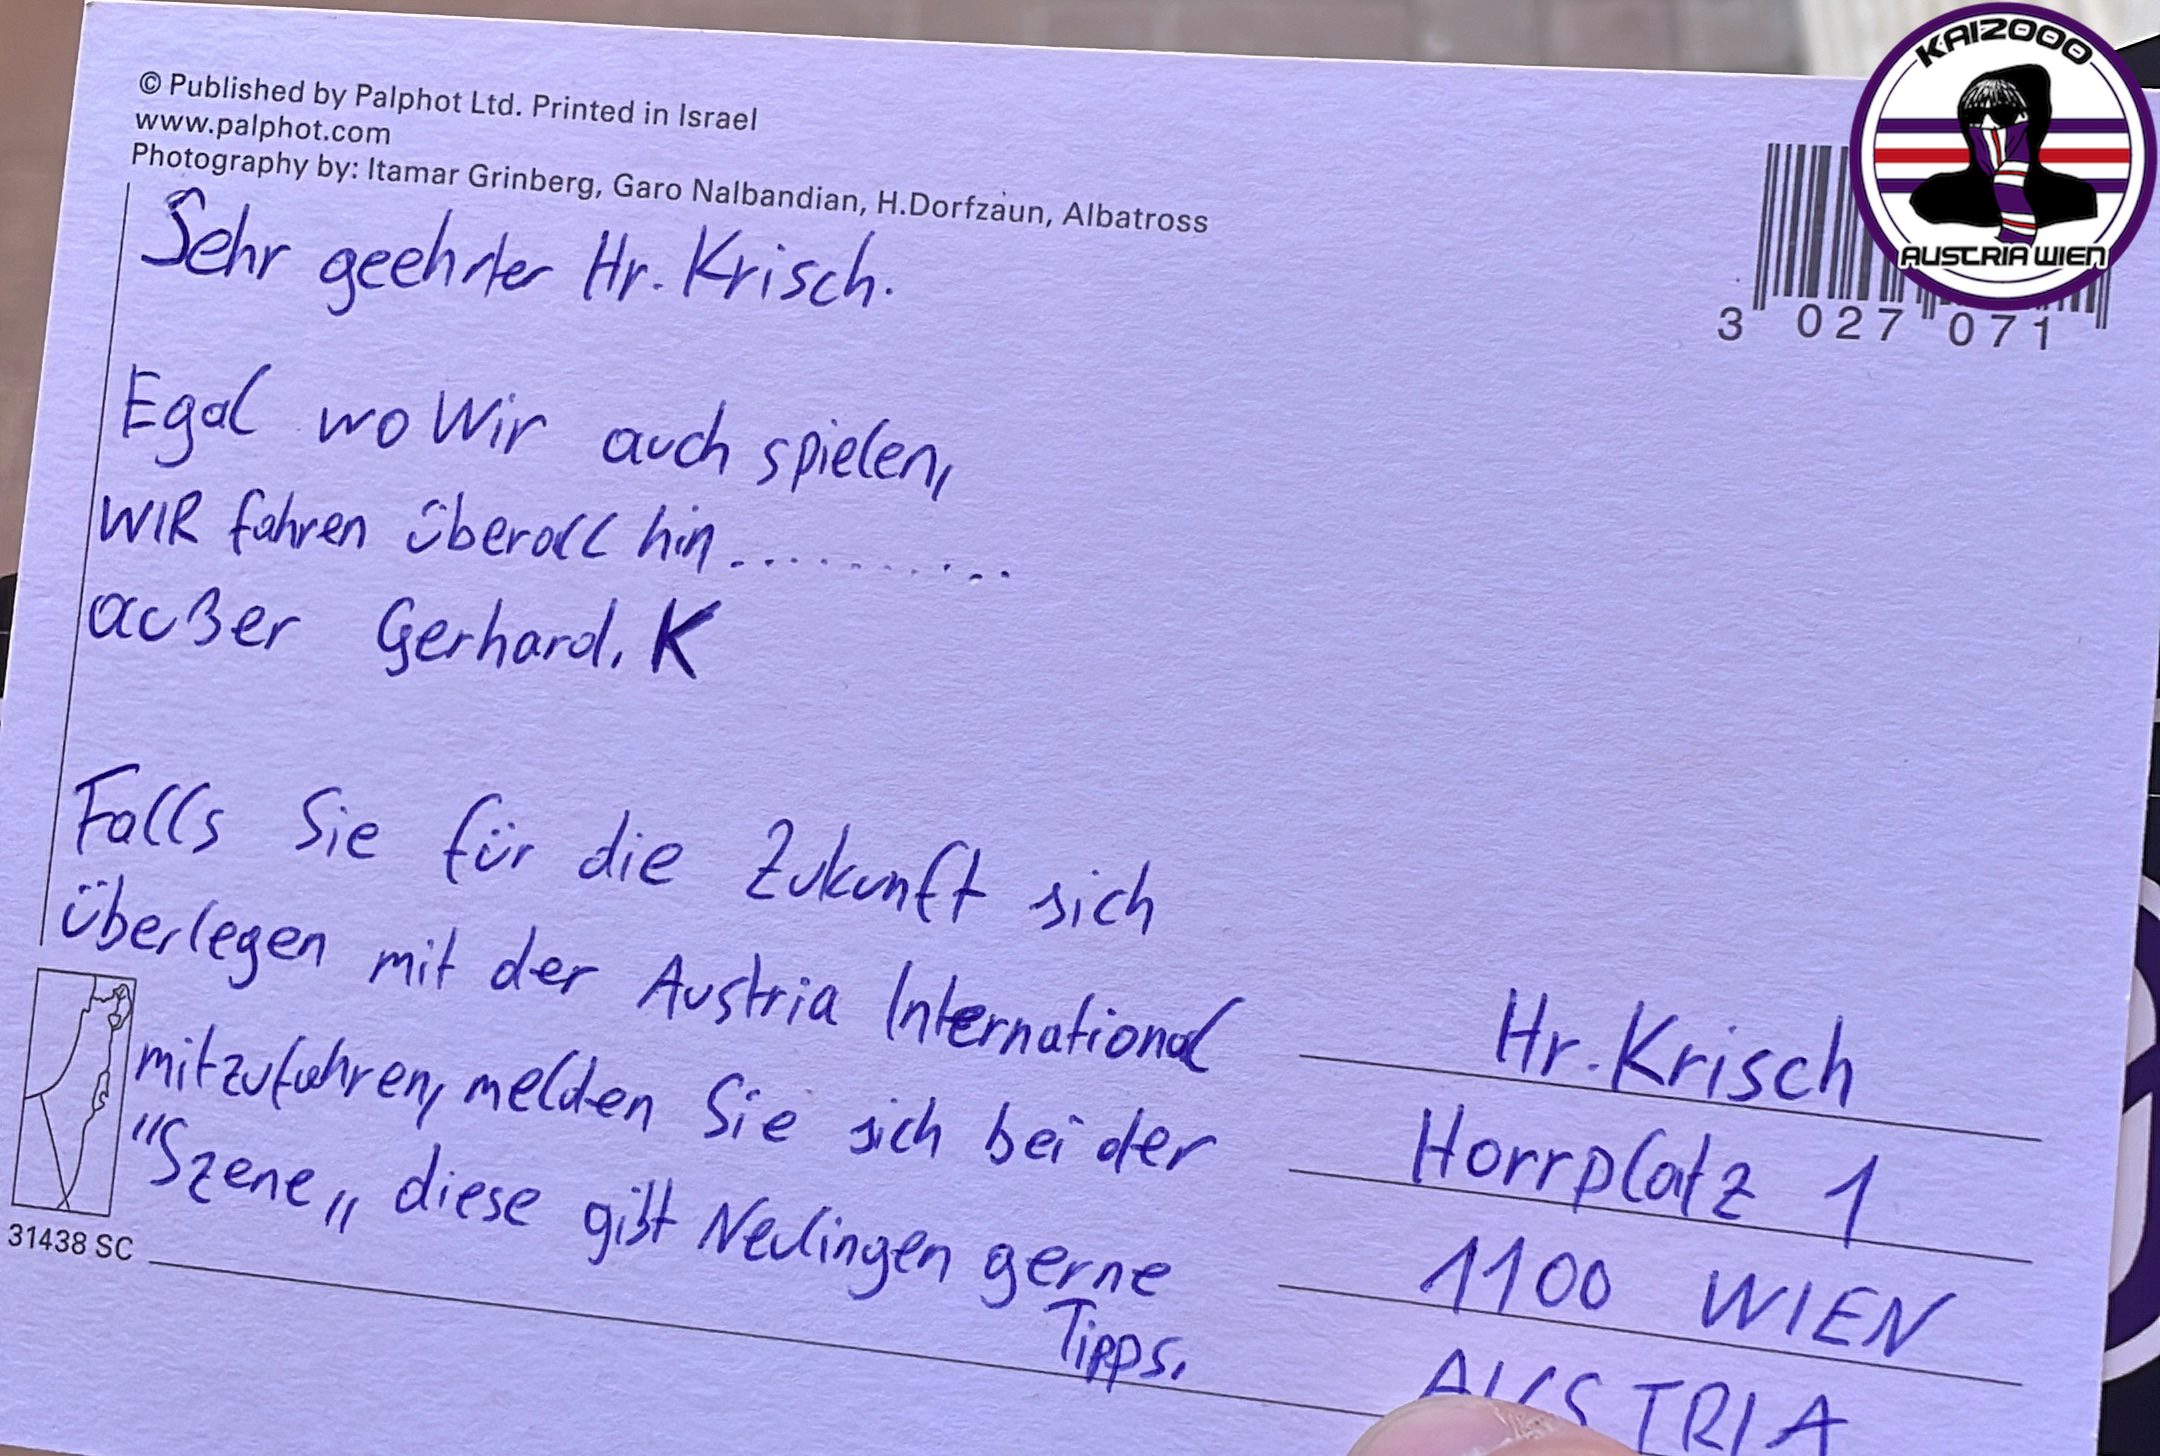 © Published by Palphot Ltd. Printed in Israel
www.palphot.com
Photography by: Itamar Grinberg, Garo Nalbandian, H.Dorfzaun, Albatross
Sehr geehrter Hr. Krisch.
Egal wo Wir auch spielen,
WIR fahren überall hin..........
außer Gerhard. K
Falls Sie für die Zukunft sich
überlegen mit der Austria International
mitzufahren, melden Sie sich bei der
"Szene" diese gibt Neulingen gerne
Tipps.
31438 SC
KAI2000
AUSTRIA WIEN
3 027 071
Hr. Krisch
Horrplatz 1
1100 WIEN
AUSTRIA